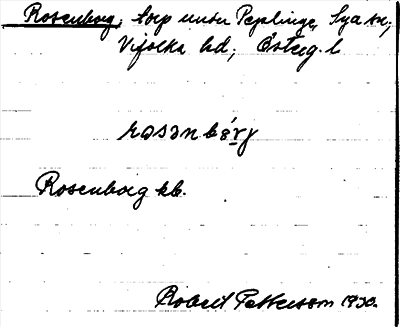 Rosenborg; torp under Peplinge, Sya sn;
Vifolka hd; Österg. l
rosənbórj
Rosenborg kb.
Robert Pettersson 1930.